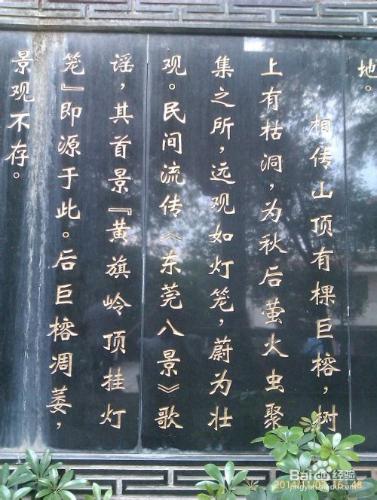 地。
相传山顶有棵巨榕，树
上有枯洞，为秋后萤火虫聚
集之所，远观如灯笼，蔚为壮
观。民间流传《东莞八景》歌
谣，其首景『黄旗岭顶挂灯
笼』即源于此。后巨榕凋萎，
景观不存。
Baidu经验